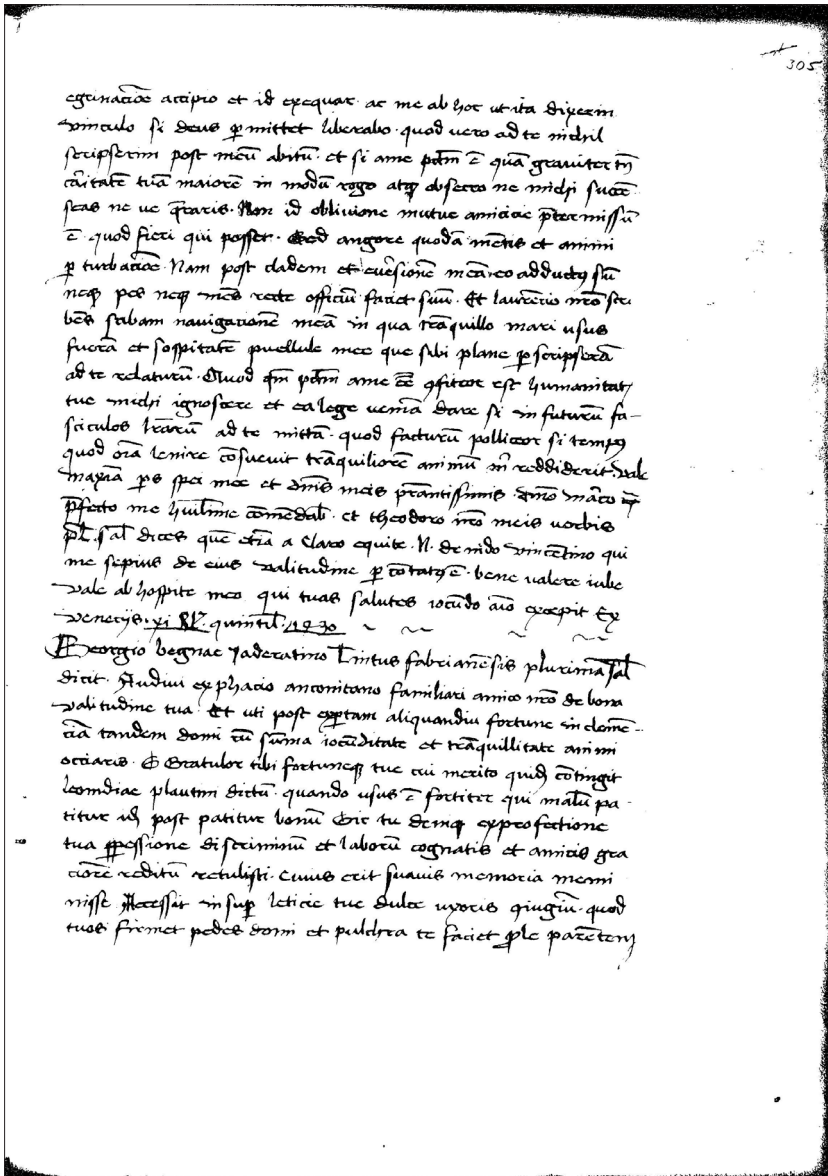 305
egrinacioē accipio et id exequar · ac me ab hoc ut ita dixerim
vinculo si deus ꝑmittet liberabo · quod vero ad te nichil
scripserim post meū abitū · et si a me pctm̄ ē quā graviter tn̄
cāritatē tuā maiorē in modū rogo atqꝫ obsecro ne michi succē
seas ne ve q̄raris · Non id oblivione mutue amicicie p̄termissū
ē · quod fieri qui posset · Sed angore quodā mētis et animi
ꝑturbacioē · Nam post cladem et ev̄sionē meā eo adductꝯ sū
neqꝫ pes neqꝫ mēs recte officiū faciet suū · Et laurēcio nr̄o scri
bēs scibam navigacionē meā in qua trāquillo mari usus
fuerā et sospitatē puellule mee que sibi plane ꝑscripserā
ad te relaturū · Quod qm̄ pctm̄ a me eē ꝯfiteor est humanitatꝭ
tue michi ignoscere et ea lege veniā dare si in futurū fa-
sciculos lr̄arū ad te mittā · quod facturū polliceor si tempꝯ
quod oīa lenire cōsuevit trāquiliorē animū m̄ reddiderit · Vale
maxīa ꝑs spei mee et dn̄is meis prēantissimis · dn̄o mārco
p̄fecto me huīlime cōmēdab̄ · et theodoro nr̄o meis verbis
pl̄ · sal̄ dices quē etiā a claro equite · N · de nido vincētino qui
me sepius de eius valitudine ꝑcōtatꝯ ē · bene valere iube
Vale ab hospite meo qui tuas salutes iocūdo aīo excepit Ex
venetijs · xi kl̄ · quintil̄ · 1430
Georgio begnae Jaderatino Lintus fabrianēsis plurimā sal̄
dicit · Audivi ex phacio anconitano familiari amico nr̄o de bona
valitudine tua · Et uti post exꝑtam aliquandiu fortune inclemē-
ciā tandem domi cū sūma iocūditate et trāquillitate animi
ociaris · Gratulor tibi fortuneqꝫ tue cui merito quid cōtingit
comdiae plautini dictū · quando usus ē fortiter qui malū pa-
titur id post patitur bonū Sic tu demqꝫ ex profectione
tua ꝑpessione discriminū et laborū cognatis et amicis gra
ciorē reditū retulisti · Cuius erit suavis memoria memi
nisse Accessit insuꝑ leticie tue dulce uxoris ꝯiugiū · quod
tuos firmet pedes domi et pulchra te faciet ꝓle parētem